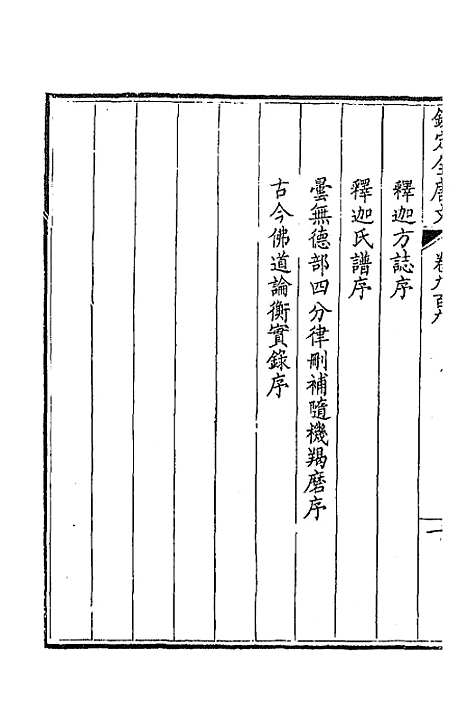 欽定全唐文
卷九百九
一
釋迦方誌序
釋迦氏譜序
曇無德部四分律刪補隨機羯磨序
古今佛道論衡實錄序